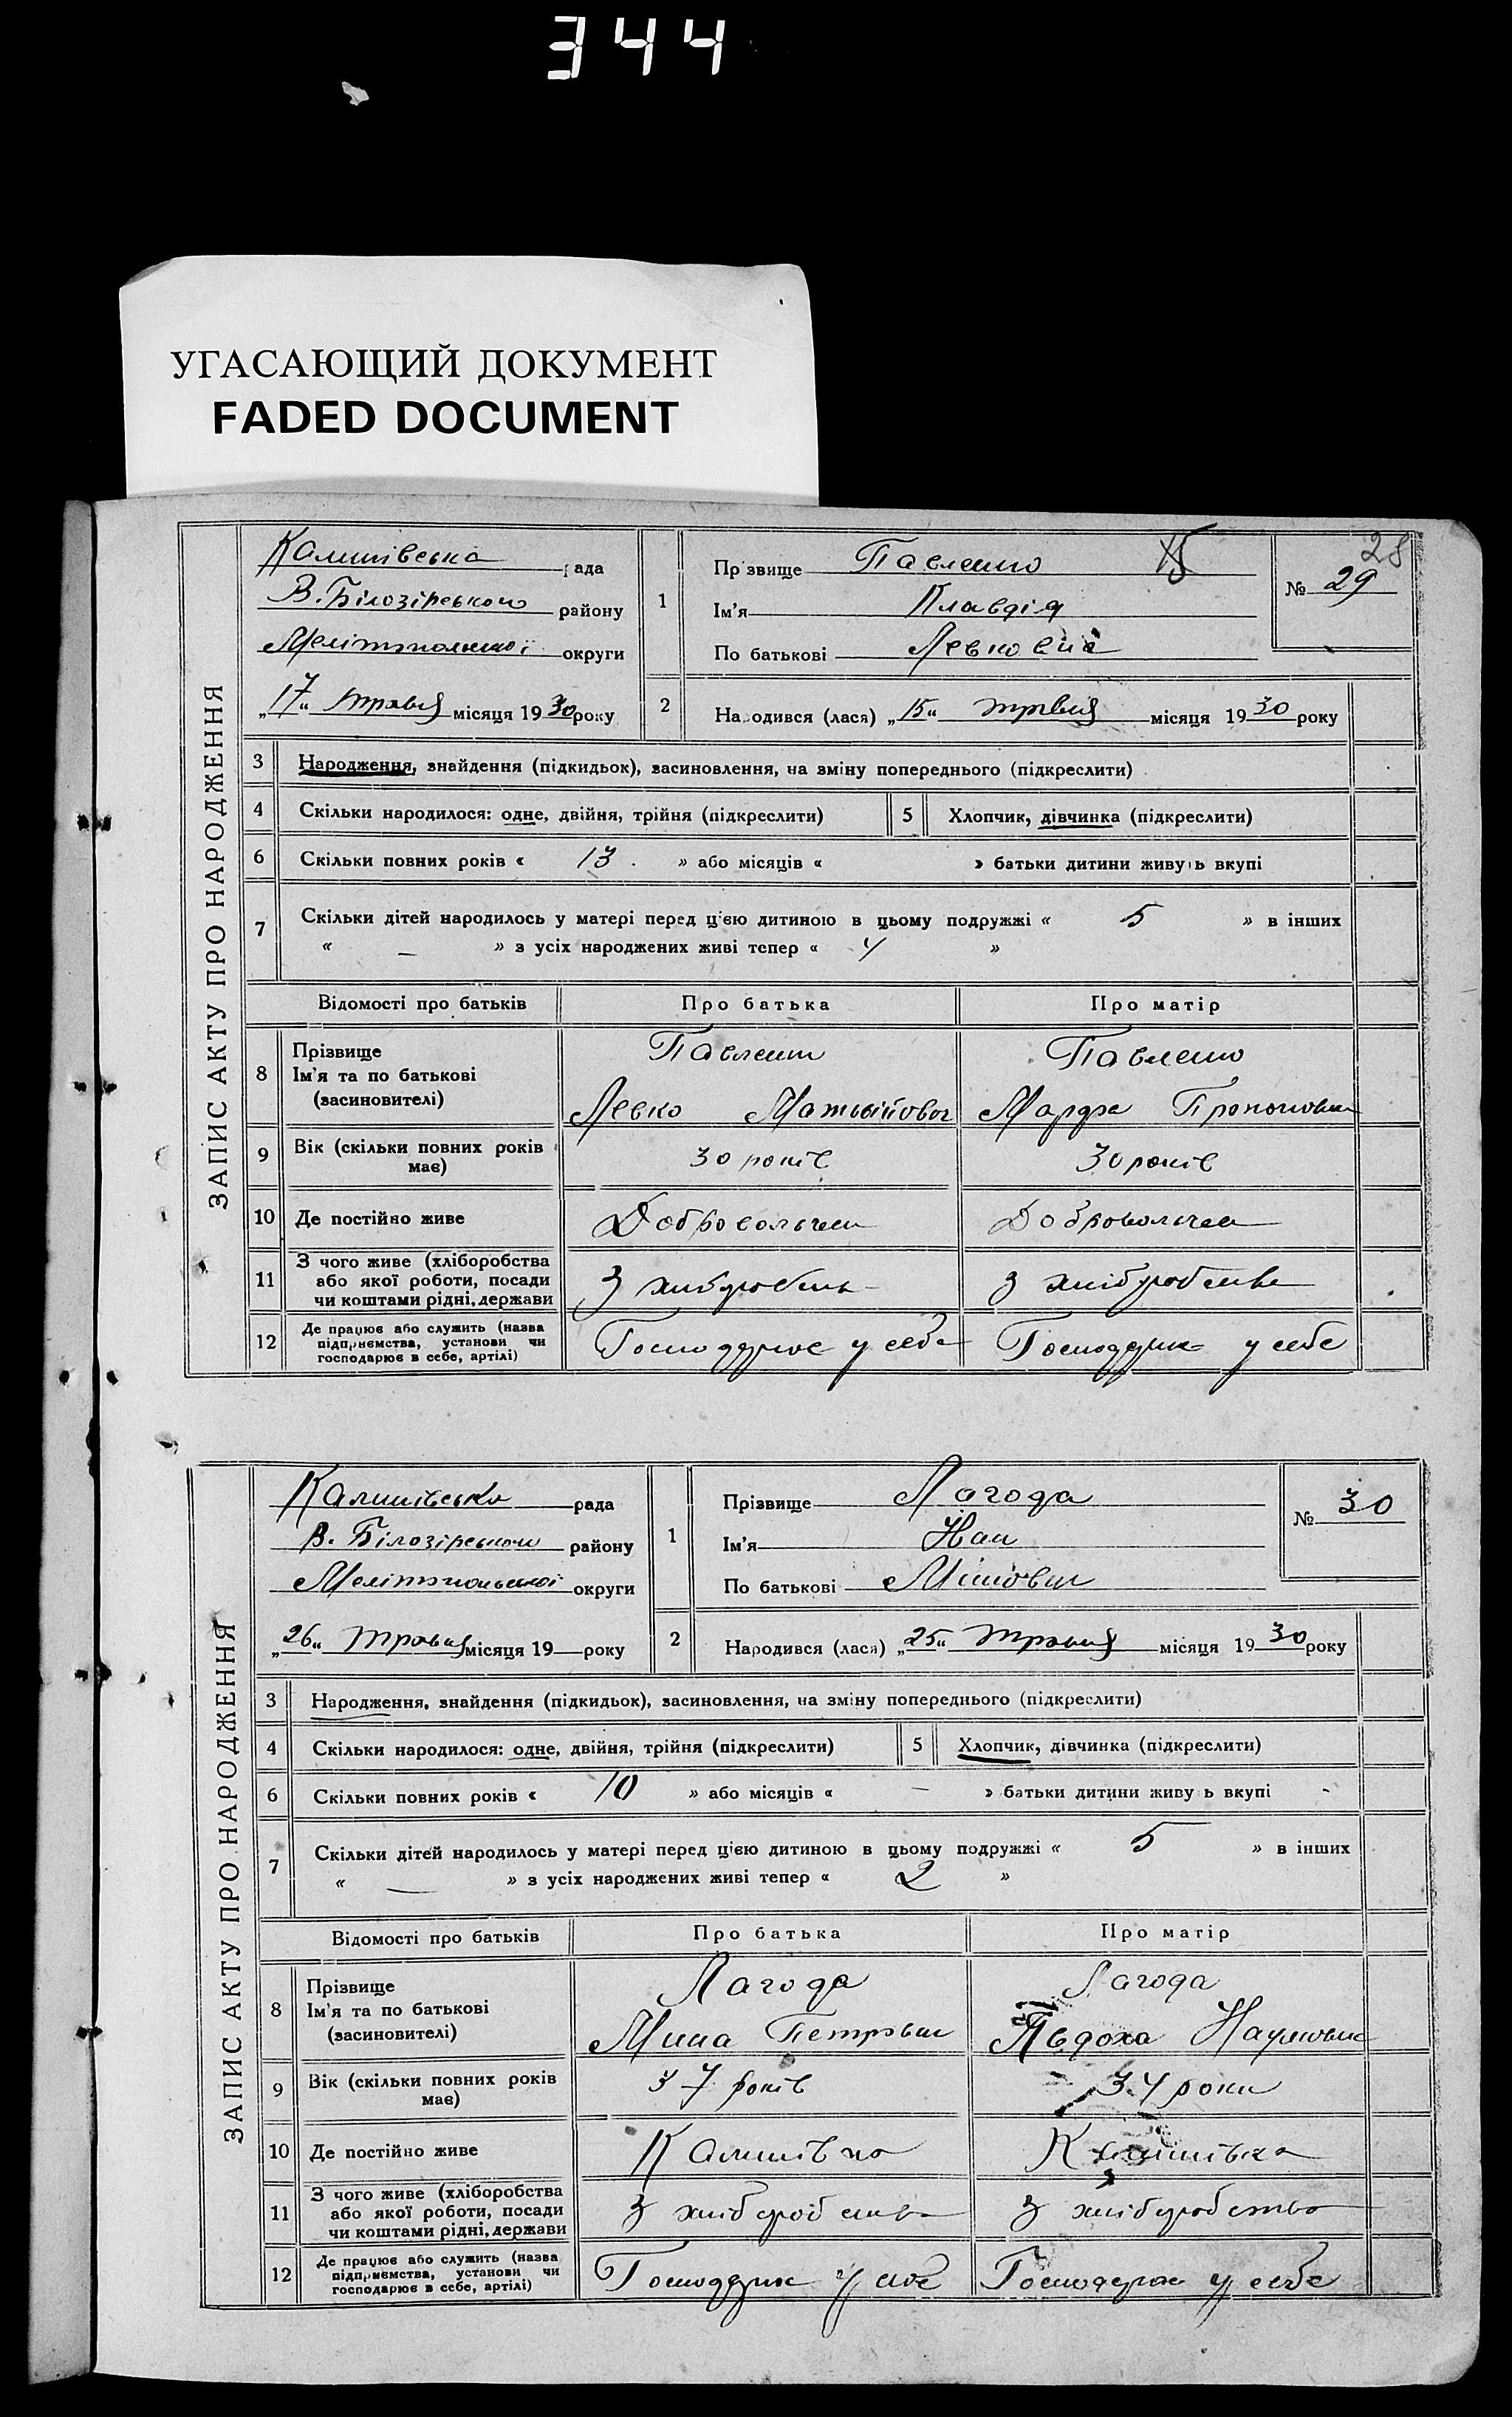 344
УГАСАЮЩИЙ ДОКУМЕНТ
FADED DOCUMENT
28
ЗАПИС АКТУ ПРО НАРОДЖЕННЯ
Калинівська рада
В. Білозірського району
Мелітопольської округи
„17“ травня місяця 1930 року
1
Прізвище Павленко 15
Ім'я Клавдія
По батькові Левковна
№ 29
2
Народився (лася) „15“ травня місяця 1930 року
3 Народження, знайдення (підкидьок), засиновлення, на зміну попереднього (підкреслити)
4 Скільки народилося: одне, двійня, трійня (підкреслити) 5 Хлопчик, дівчинка (підкреслити)
6 Скільки повних років « 13 . » або місяців « » батьки дитини живуть вкупі
7 Скільки дітей народилось у матері перед цією дитиною в цьому подружжі « 5 » в інших
« — » з усіх народжених живі тепер « 4 »
Відомості про батьків Про батька Про матір
8 Прізвище
Ім'я та по батькові
(засиновителі)
Павленко
Левко Матвійович
Павленко
Марфа
9 Вік (скільки повних років має) 30 років 30 років
10 Де постійно живе
11 З чого живе (хліборобства або якої роботи, посади чи коштами рідні, держави З хліборобства З хліборобства
12 Де працює або служить (назва підприємства, установи чи господарює в себе, артілі) Господарює у себе Господарює у себе
ЗАПИС АКТУ ПРО НАРОДЖЕННЯ
Калинівська рада
В. Білозірського району
Мелітопольської округи
„26“ травня місяця 19 року
1
Прізвище Лагода
Ім'я Іван
По батькові Мінович
№ 30
2
Народився (лася) „25“ травня місяця 1930 року
3 Народження, знайдення (підкидьок), засиновлення, на зміну попереднього (підкреслити)
4 Скільки народилося: одне, двійня, трійня (підкреслити) 5 Хлопчик, дівчинка (підкреслити)
6 Скільки повних років « 10 » або місяців « — » батьки дитини живуть вкупі -
7 Скільки дітей народилось у матері перед цією дитиною в цьому подружжі « 5 » в інших
« — » з усіх народжених живі тепер « 2 »
Відомості про батьків Про батька Про матір
8 Прізвище
Ім'я та по батькові
(засиновителі)
Лагода
Мина Петрович
Лагода
Явдоха Наумовна
9 Вік (скільки повних років має) 37 років 34 роки
10 Де постійно живе Калинівка Калинівка
11 З чого живе (хліборобства або якої роботи, посади чи коштами рідні, держави З хліборобства З хліборобства
12 Де працює або служить (назва підприємства, установи чи господарює в себе, артілі) Господарює у себе Господарює у себе